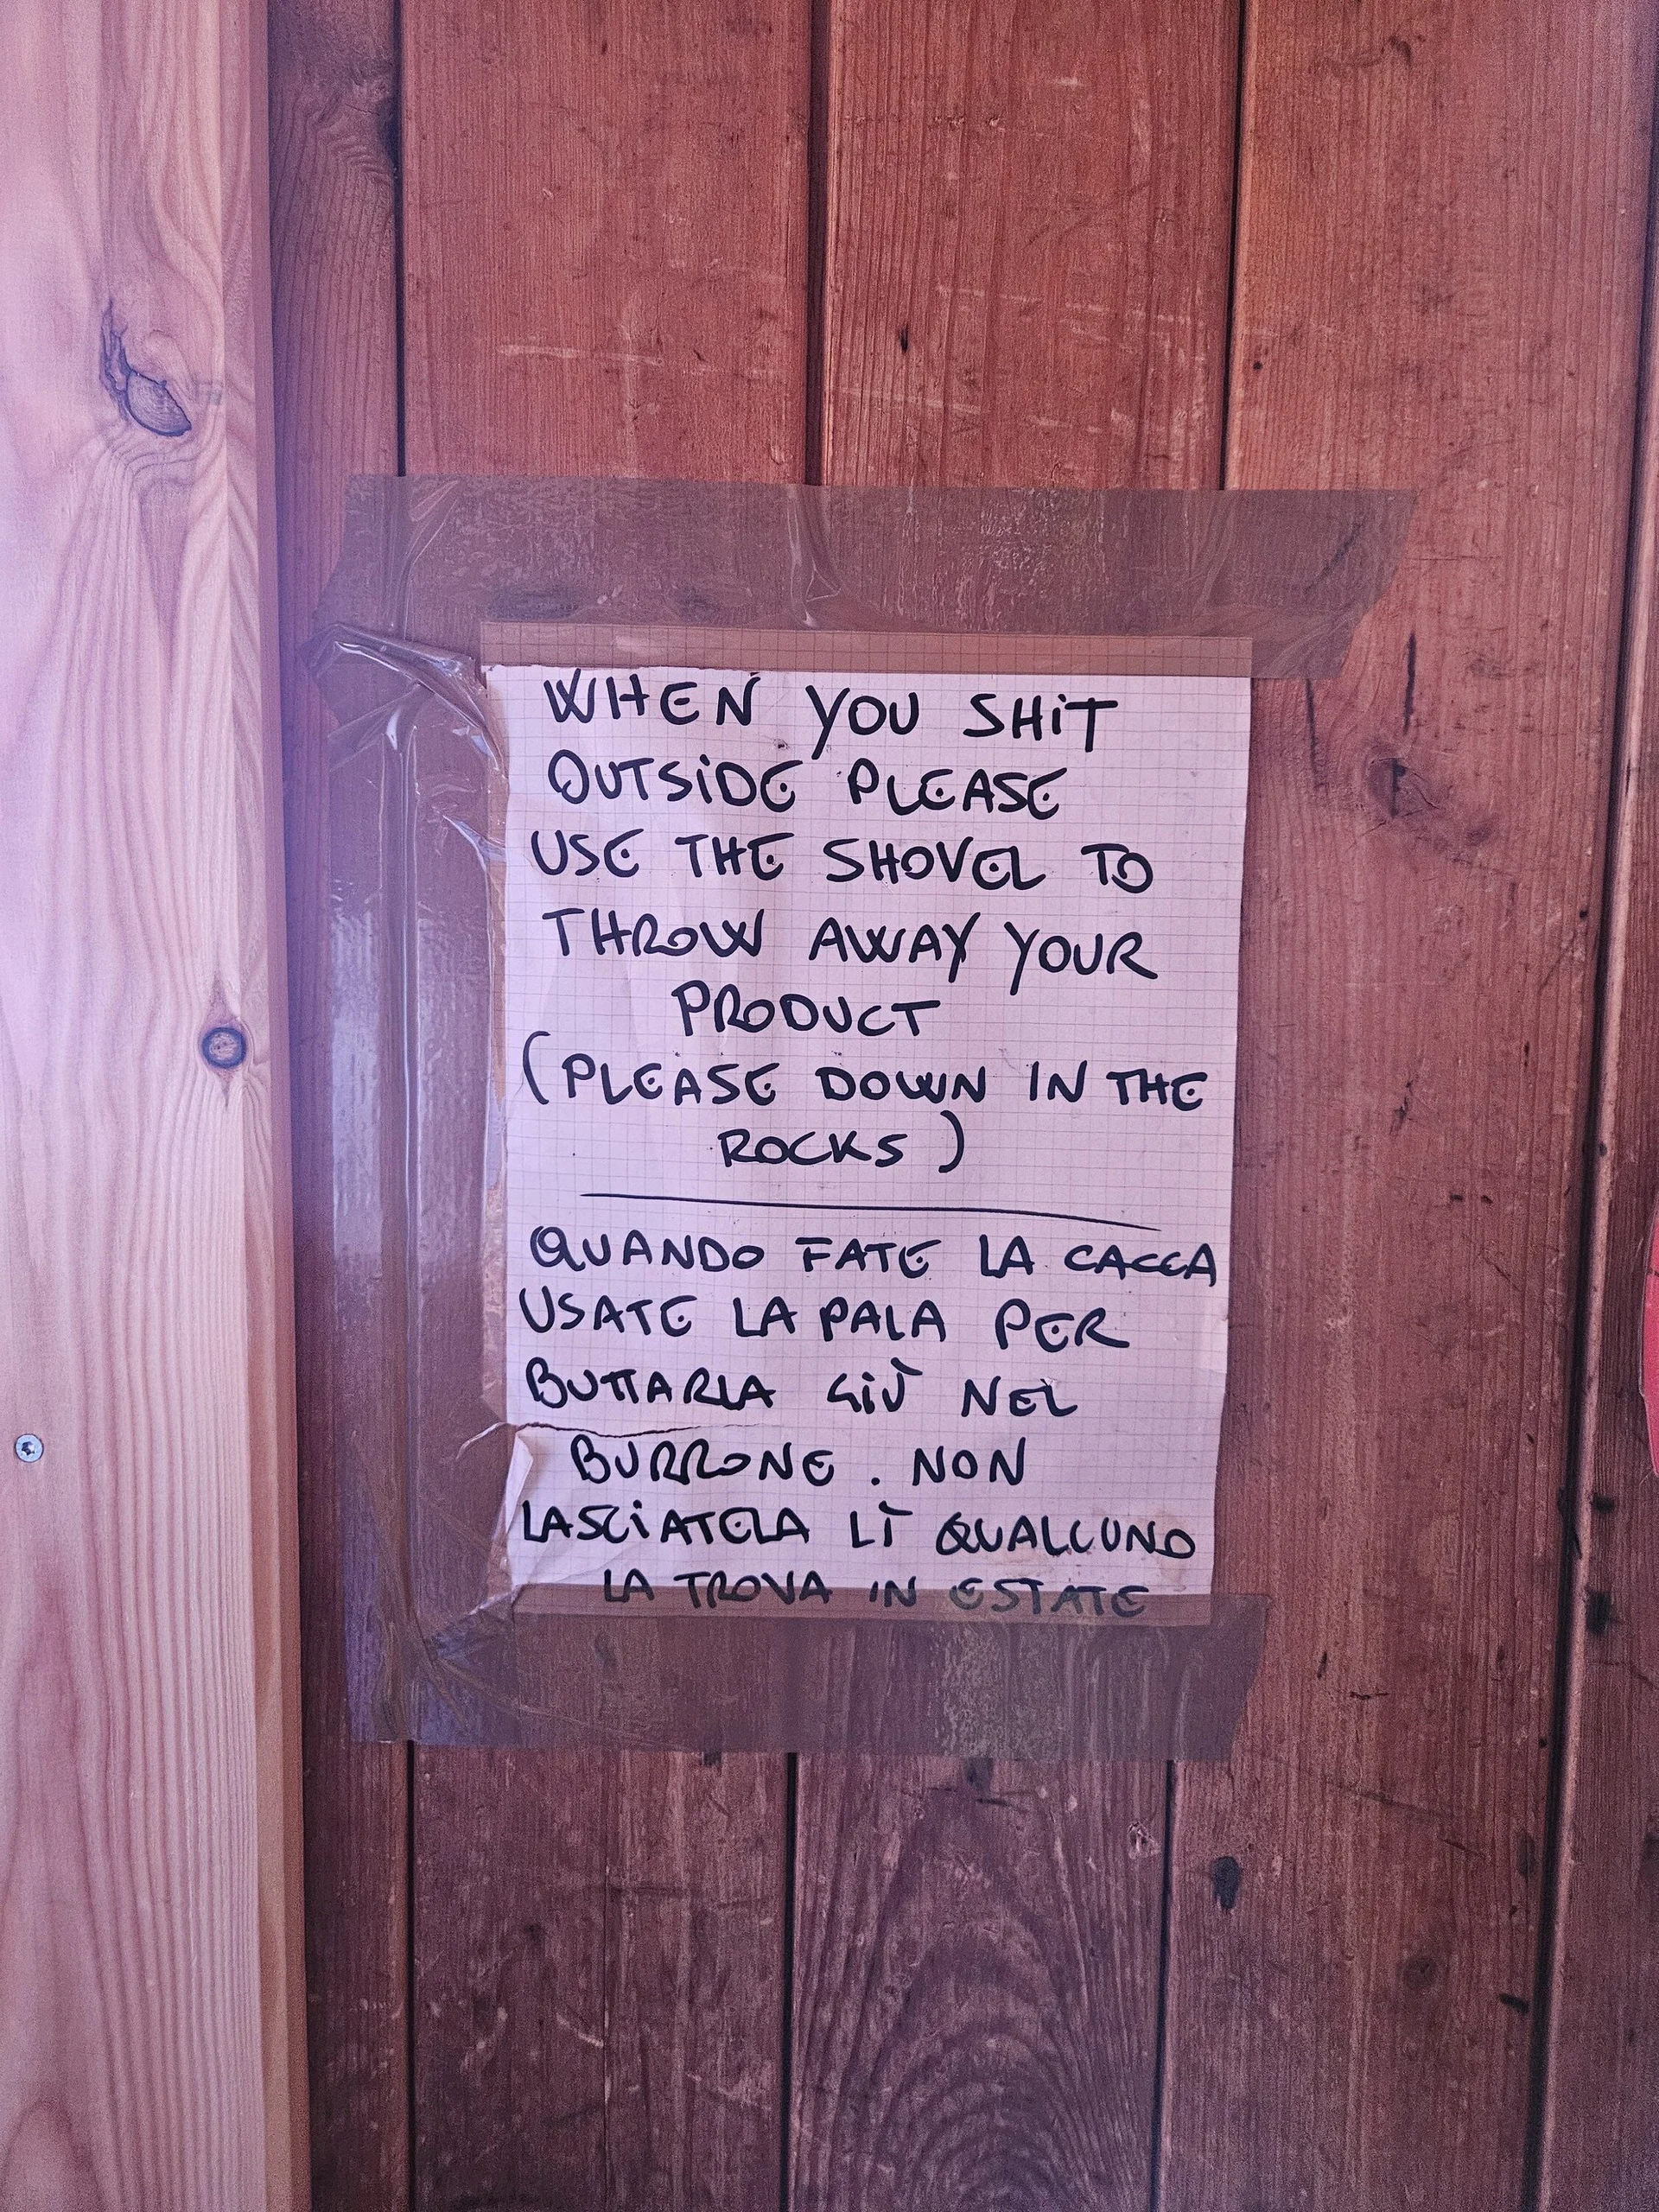 WHEN YOU SHIT
OUTSIDE PLEASE
USE THE SHOVEL TO
THROW AWAY YOUR
PRODUCT
(PLEASE DOWN IN THE
ROCKS)
QUANDO FATE LA CACCA
USATE LA PALA PER
BUTTARLA GIÙ NEL
BURRONE. NON
LASCIATELA LÌ QUALCUNO
LA TROVA IN ESTATE